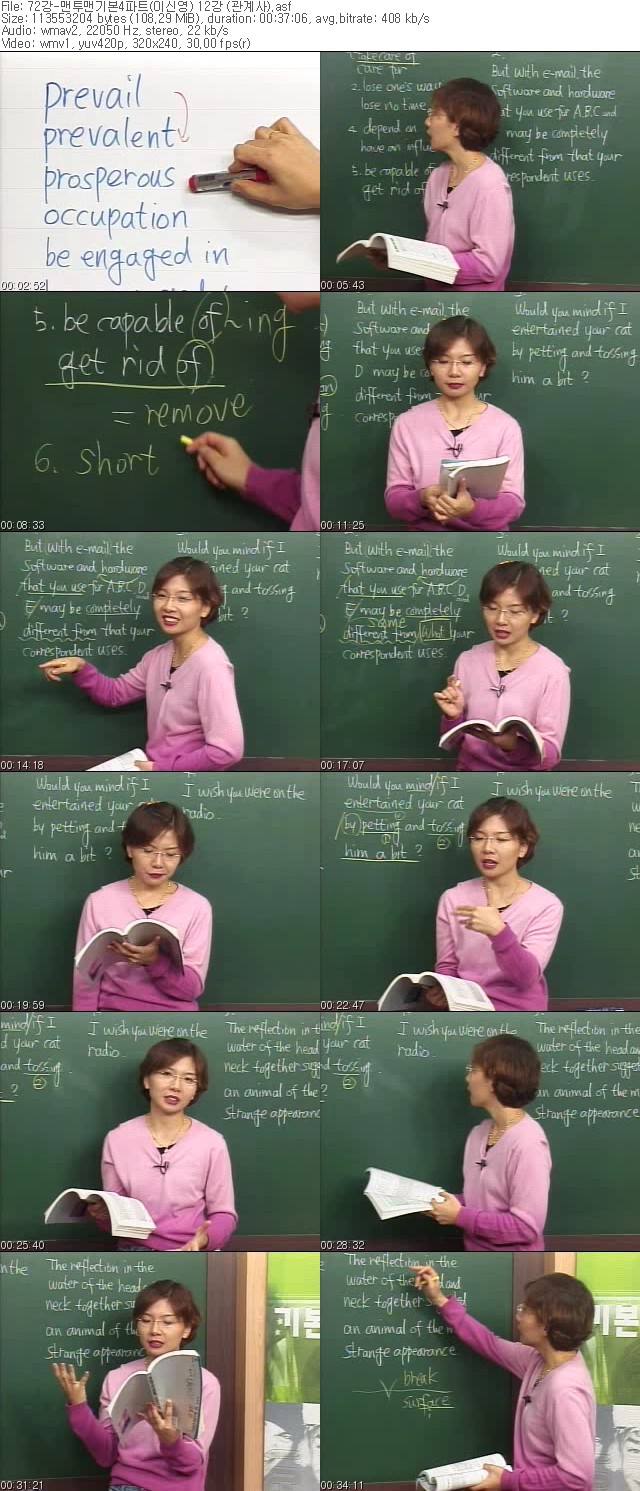 File: 72강-맨투맨기본4파트(이신영) 12강 (관계사).asf
Size: 113553204 bytes (108,29 MiB), duration: 00:37:06, avg,bitrate: 408 kb/s
Audio: wmav2, 22050 Hz, stereo, 22 kb/s
Video: wmv1, yuv420p, 320x240, 30,00 fps(r)
prevail
prevalent
prosperous
occupation
be engaged in
00:02:52
take care of
care for
2. lose one's way
lose no time
4. depend on
have an influ
5. be capable of
get rid of
But with e-mail, the
Software and hardware
at you use for A.B.C and
may be completely
different from that your
respondent uses.
00:05:43
5. be capable of ~ing
get rid of
= remove
6. short
00:08:33
But with e-mail, the
Software and
that you use
D may be co
different from
corresp
Would you mind if I
entertained your cat
by petting and tossing
him a bit ?
00:11:25
But with e-mail, the
Software and hardware
that you use for A.B.C D, and
E may be completely
different from that your
correspondent uses.
Would you mind if I
ned your cat
g and tossing
bit ?
00:14:18
But with e-mail, the
Software and hardware
that you use for A.B.C D, and
E may be completely
same
different from What your
correspondent uses.
Would you mind if I
ned your cat
and tossing
t ?
00:17:07
Would you mind if I
entertained your cat
by petting and t
him a bit ?
I wish you were on the
radio.
00:19:59
Would you mind/if I
entertained your cat
by petting and tossing
① ②
him a bit ?
I wish you were on the
00:22:47
mind/if I
d your cat
and tossing
②
?
I wish you were on the
radio.
The reflection in t
water of the head
neck together sugge
an animal of the
Strange appearance
00:25:40
ind/if I
your cat
d tossing
②
I wish you were on the
radio.
The reflection in th
water of the head an
neck together sugges
an animal of the m
Strange appearance
00:28:32
n the
The reflection in the
water of the head
neck together su
an animal of the
Strange appearance
기본
00:31:21
The reflection in the
water of the head and
neck together suggest
an animal of the m
Strange appearance
break
surface
기본
00:34:11